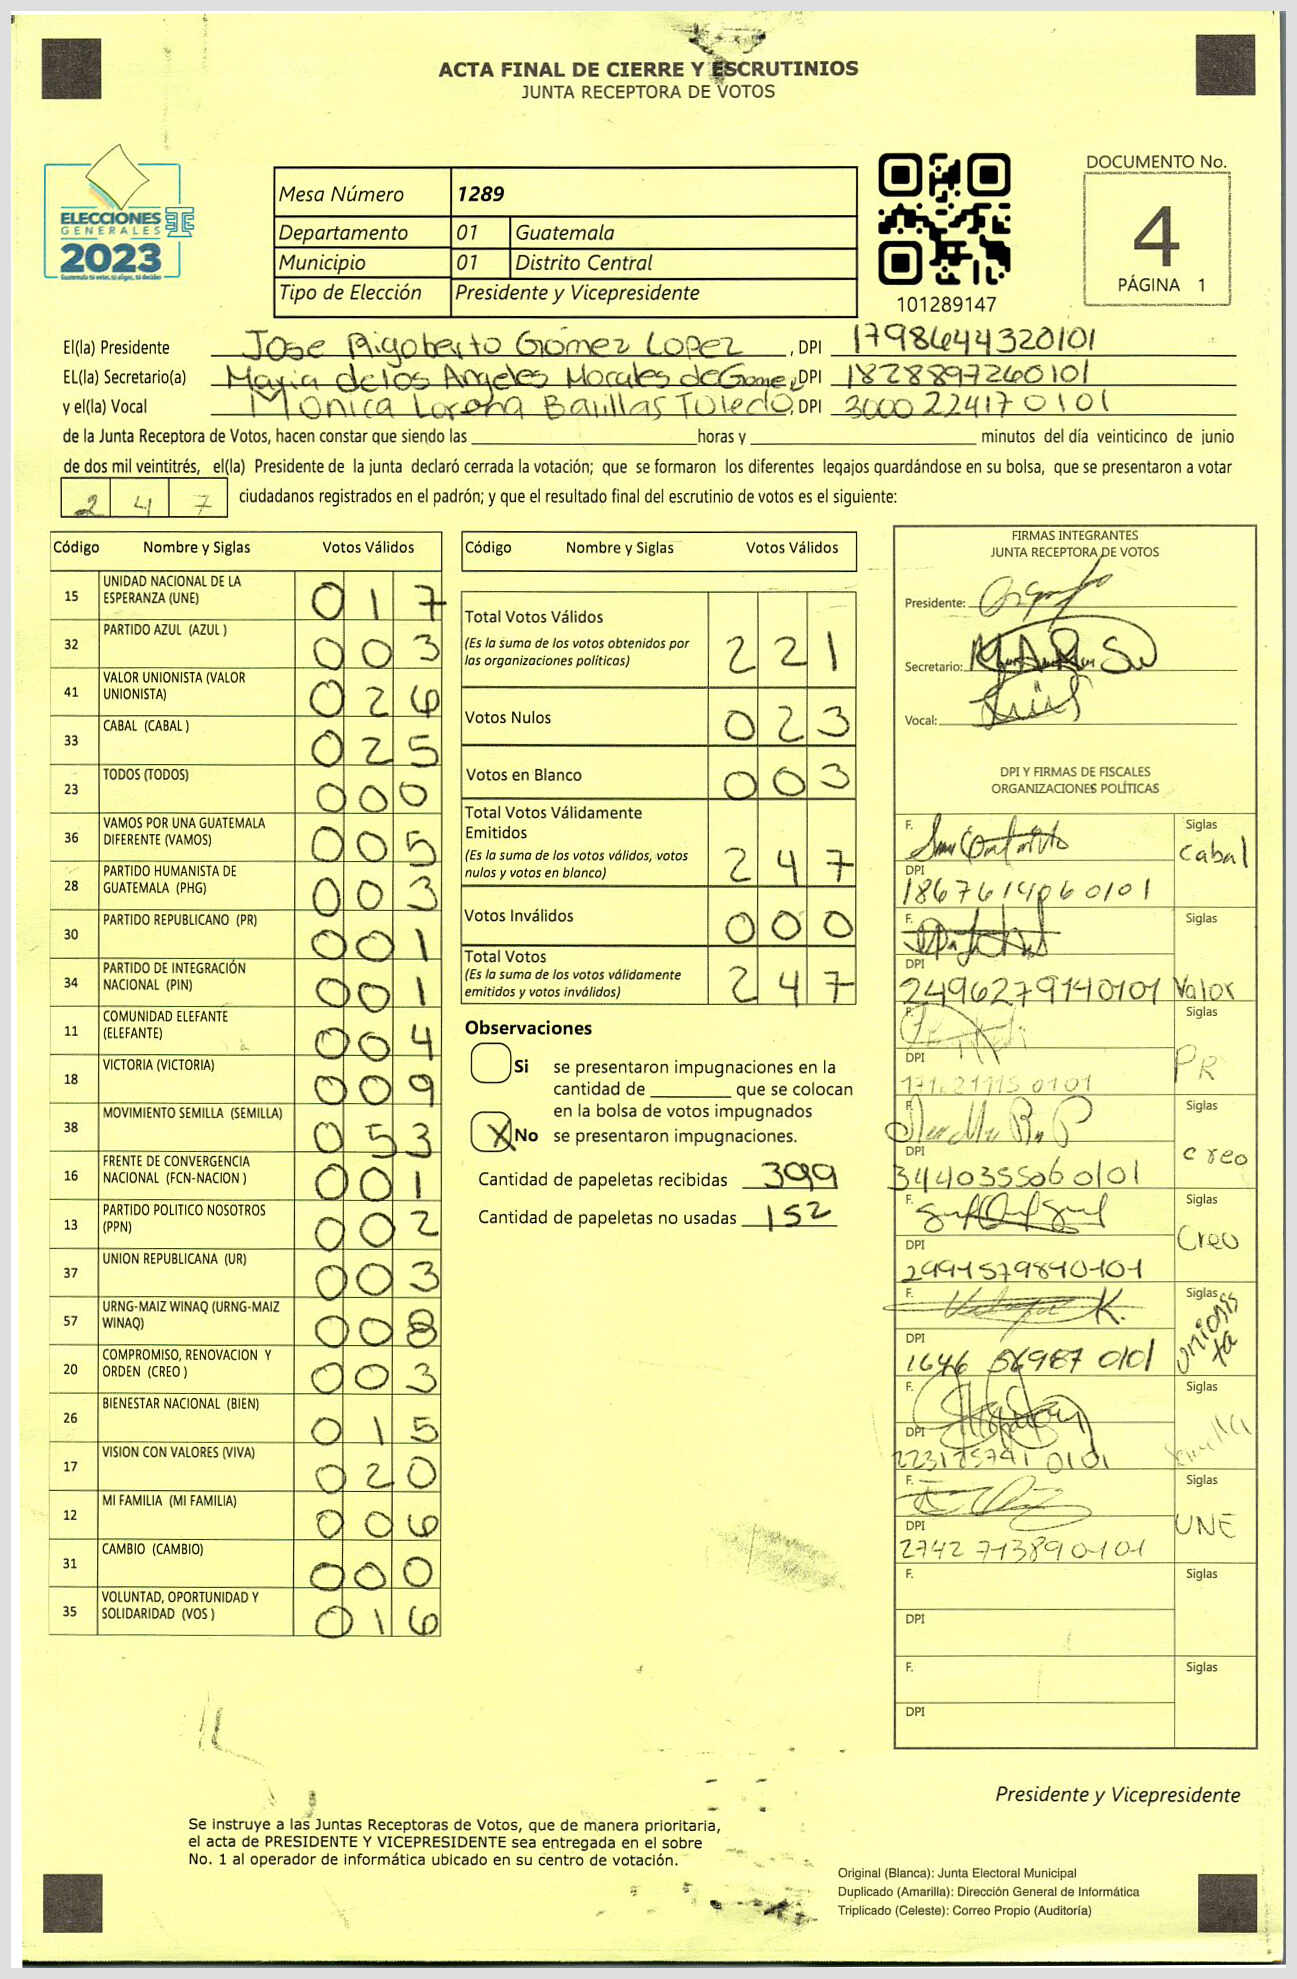 ACTA FINAL DE CIERRE Y ESCRUTINIOS
JUNTA RECEPTORA DE VOTOS
ELECCIONES
GENERALES
2023
Guatemala tú votas, tú eliges, tú decides
Mesa Número 1289
Departamento 01 Guatemala
Municipio 01 Distrito Central
Tipo de Elección Presidente y Vicepresidente
101289147
DOCUMENTO No.
4
PÁGINA 1
El(la) Presidente Jose Rigoberto Gómez Lopez, DPI 1798644320101
EL(la) Secretario(a) Maria de los Angeles Morales de Gomez, DPI 1828897260101
y el(la) Vocal Monica Lorena Barillas Toledo, DPI 3000224170101
de la Junta Receptora de Votos, hacen constar que siendo las horas y minutos del día veinticinco de junio
de dos mil veintitrés, el(la) Presidente de la junta declaró cerrada la votación; que se formaron los diferentes legajos guardándose en su bolsa, que se presentaron a votar
247 ciudadanos registrados en el padrón; y que el resultado final del escrutinio de votos es el siguiente:
Código Nombre y Siglas Votos Válidos
15 UNIDAD NACIONAL DE LA ESPERANZA (UNE) 017
32 PARTIDO AZUL (AZUL ) 003
41 VALOR UNIONISTA (VALOR UNIONISTA) 026
33 CABAL (CABAL ) 025
23 TODOS (TODOS) 000
36 VAMOS POR UNA GUATEMALA DIFERENTE (VAMOS) 005
28 PARTIDO HUMANISTA DE GUATEMALA (PHG) 003
30 PARTIDO REPUBLICANO (PR) 001
34 PARTIDO DE INTEGRACIÓN NACIONAL (PIN) 001
11 COMUNIDAD ELEFANTE (ELEFANTE) 004
18 VICTORIA (VICTORIA) 009
38 MOVIMIENTO SEMILLA (SEMILLA) 053
16 FRENTE DE CONVERGENCIA NACIONAL (FCN-NACION ) 001
13 PARTIDO POLITICO NOSOTROS (PPN) 002
37 UNION REPUBLICANA (UR) 003
57 URNG-MAIZ WINAQ (URNG-MAIZ WINAQ) 008
20 COMPROMISO, RENOVACION Y ORDEN (CREO ) 003
26 BIENESTAR NACIONAL (BIEN) 015
17 VISION CON VALORES (VIVA) 020
12 MI FAMILIA (MI FAMILIA) 006
31 CAMBIO (CAMBIO) 000
35 VOLUNTAD, OPORTUNIDAD Y SOLIDARIDAD (VOS ) 016
Código Nombre y Siglas Votos Válidos
Total Votos Válidos 221
(Es la suma de los votos obtenidos por
las organizaciones políticas)
Votos Nulos 023
Votos en Blanco 003
Total Votos Válidamente
Emitidos 247
(Es la suma de los votos válidos, votos
nulos y votos en blanco)
Votos Inválidos 000
Total Votos 247
(Es la suma de los votos válidamente
emitidos y votos inválidos)
Observaciones
Si se presentaron impugnaciones en la
cantidad de que se colocan
en la bolsa de votos impugnados
X No se presentaron impugnaciones.
Cantidad de papeletas recibidas 399
Cantidad de papeletas no usadas 152
FIRMAS INTEGRANTES
JUNTA RECEPTORA DE VOTOS
Presidente:
Secretario:
Vocal:
DPI Y FIRMAS DE FISCALES
ORGANIZACIONES POLÍTICAS
F. Siglas
Cabal
DPI
1867614060101
F. Siglas
DPI
2496279140101 Valor
F. Siglas
PR
DPI
F. Siglas
creo
DPI
3440355060101
F. Siglas
Creo
DPI
2994579840101
F. Siglas
unionista
DPI
1646 56987 0101
F. Siglas
Semilla
DPI
F. Siglas
UNE
DPI
2742 713890101
F. Siglas
DPI
F. Siglas
DPI
Presidente y Vicepresidente
Se instruye a las Juntas Receptoras de Votos, que de manera prioritaria,
el acta de PRESIDENTE Y VICEPRESIDENTE sea entregada en el sobre
No. 1 al operador de informática ubicado en su centro de votación.
Original (Blanca): Junta Electoral Municipal
Duplicado (Amarilla): Dirección General de Informática
Triplicado (Celeste): Correo Propio (Auditoría)